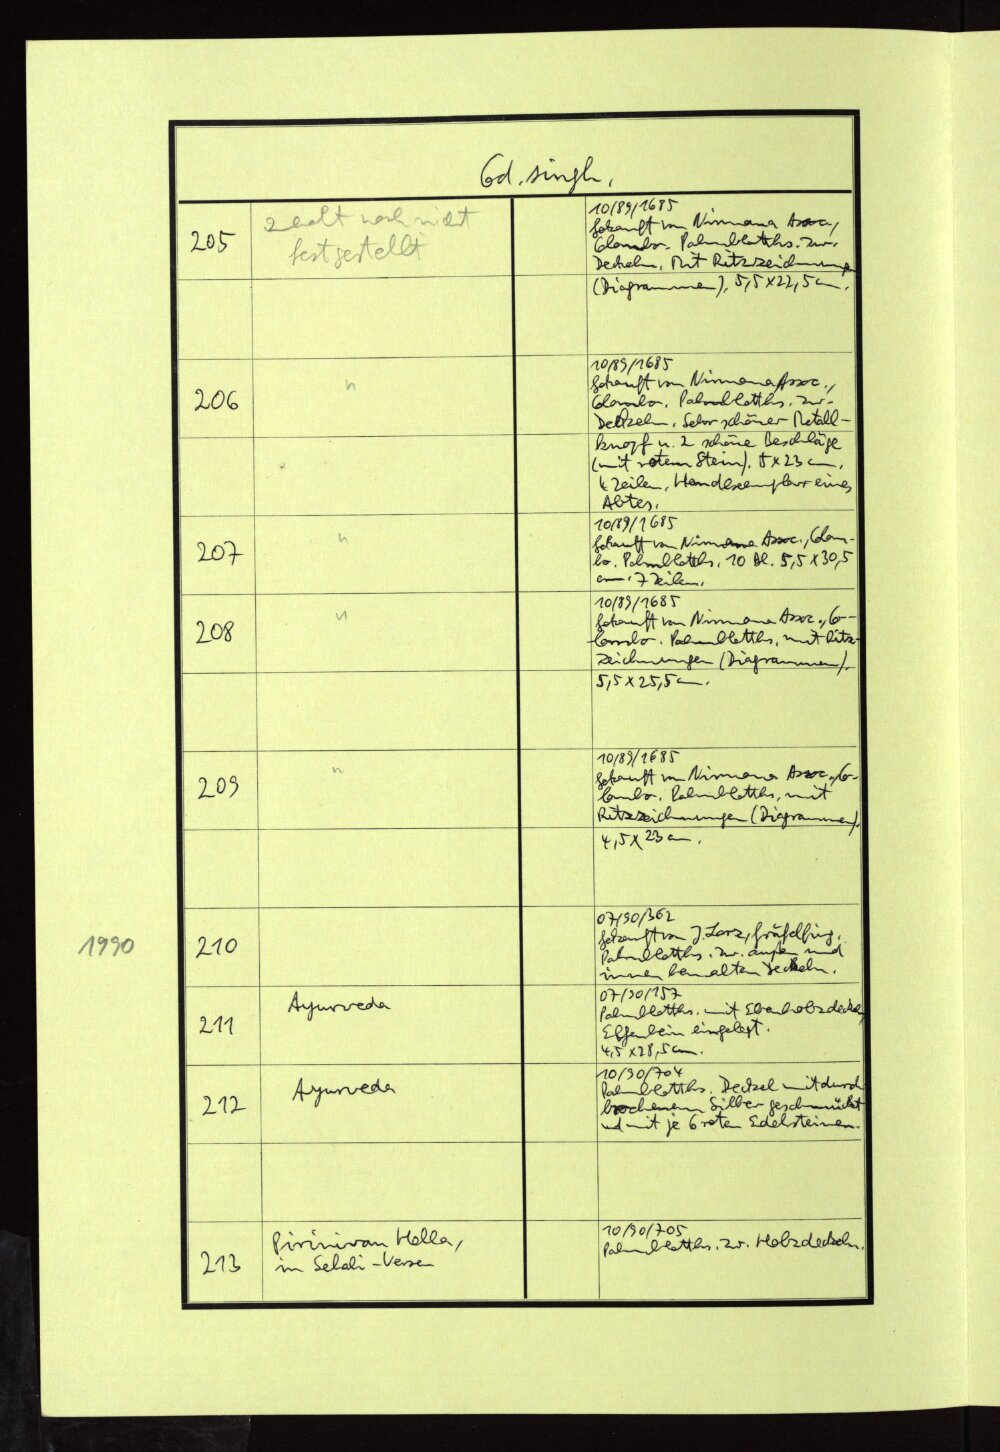 Cod. singh.
205
Inhalt noch nicht
festgestellt
10/89/1685
Gekauft von Nirmana Assoc.,
Colombo. Palmblatths. zw.
Deckeln. Mit Ritzzeichnungen
(Diagrammen). 5,5 x 22,5 cm.
206
"
10/89/1685
Gekauft von Nirmana Assoc.,
Colombo. Palmblatths. zw.
Deckeln. Sehr schöner Metall-
knopf u. 2 schöne Beschläge
(mit rotem Stein). 5 x 23 cm.
4 Zeilen. Handexemplar eines
Abtes.
207
"
10/89/1685
Gekauft von Nirmana Assoc., Colom-
bo. Palmblatths. 10 Bl. 5,5 x 30,5
cm. 7 Zeilen.
208
"
10/89/1685
Gekauft von Nirmana Assoc., Co-
lombo. Palmblatths. mit Ritz-
zeichnungen (Diagrammen).
5,5 x 25,5 cm.
209
"
10/89/1685
Gekauft von Nirmana Assoc., Co-
lombo. Palmblatths. mit
Ritzzeichnungen (Diagrammen).
4,5 x 23 cm.
1990
210
07/90/362
Gekauft von J. Lorz, Gräfelfing.
Palmblatths. zw. außen und
innen bemalten Deckeln.
211
Ayurveda
07/90/157
Palmblatths. mit Ebenholzdeckel,
Elfenbein eingelegt.
4,5 x 28,5 cm.
212
Ayurveda
10/90/704
Palmblatths. Deckel mit durch
brochenem Silber geschmückt
und mit je 6 roten Edelsteinen.
213
Pirinivan Halla,
in Selali-Versen
10/90/705
Palmblatths. zw. Holzdeckeln.